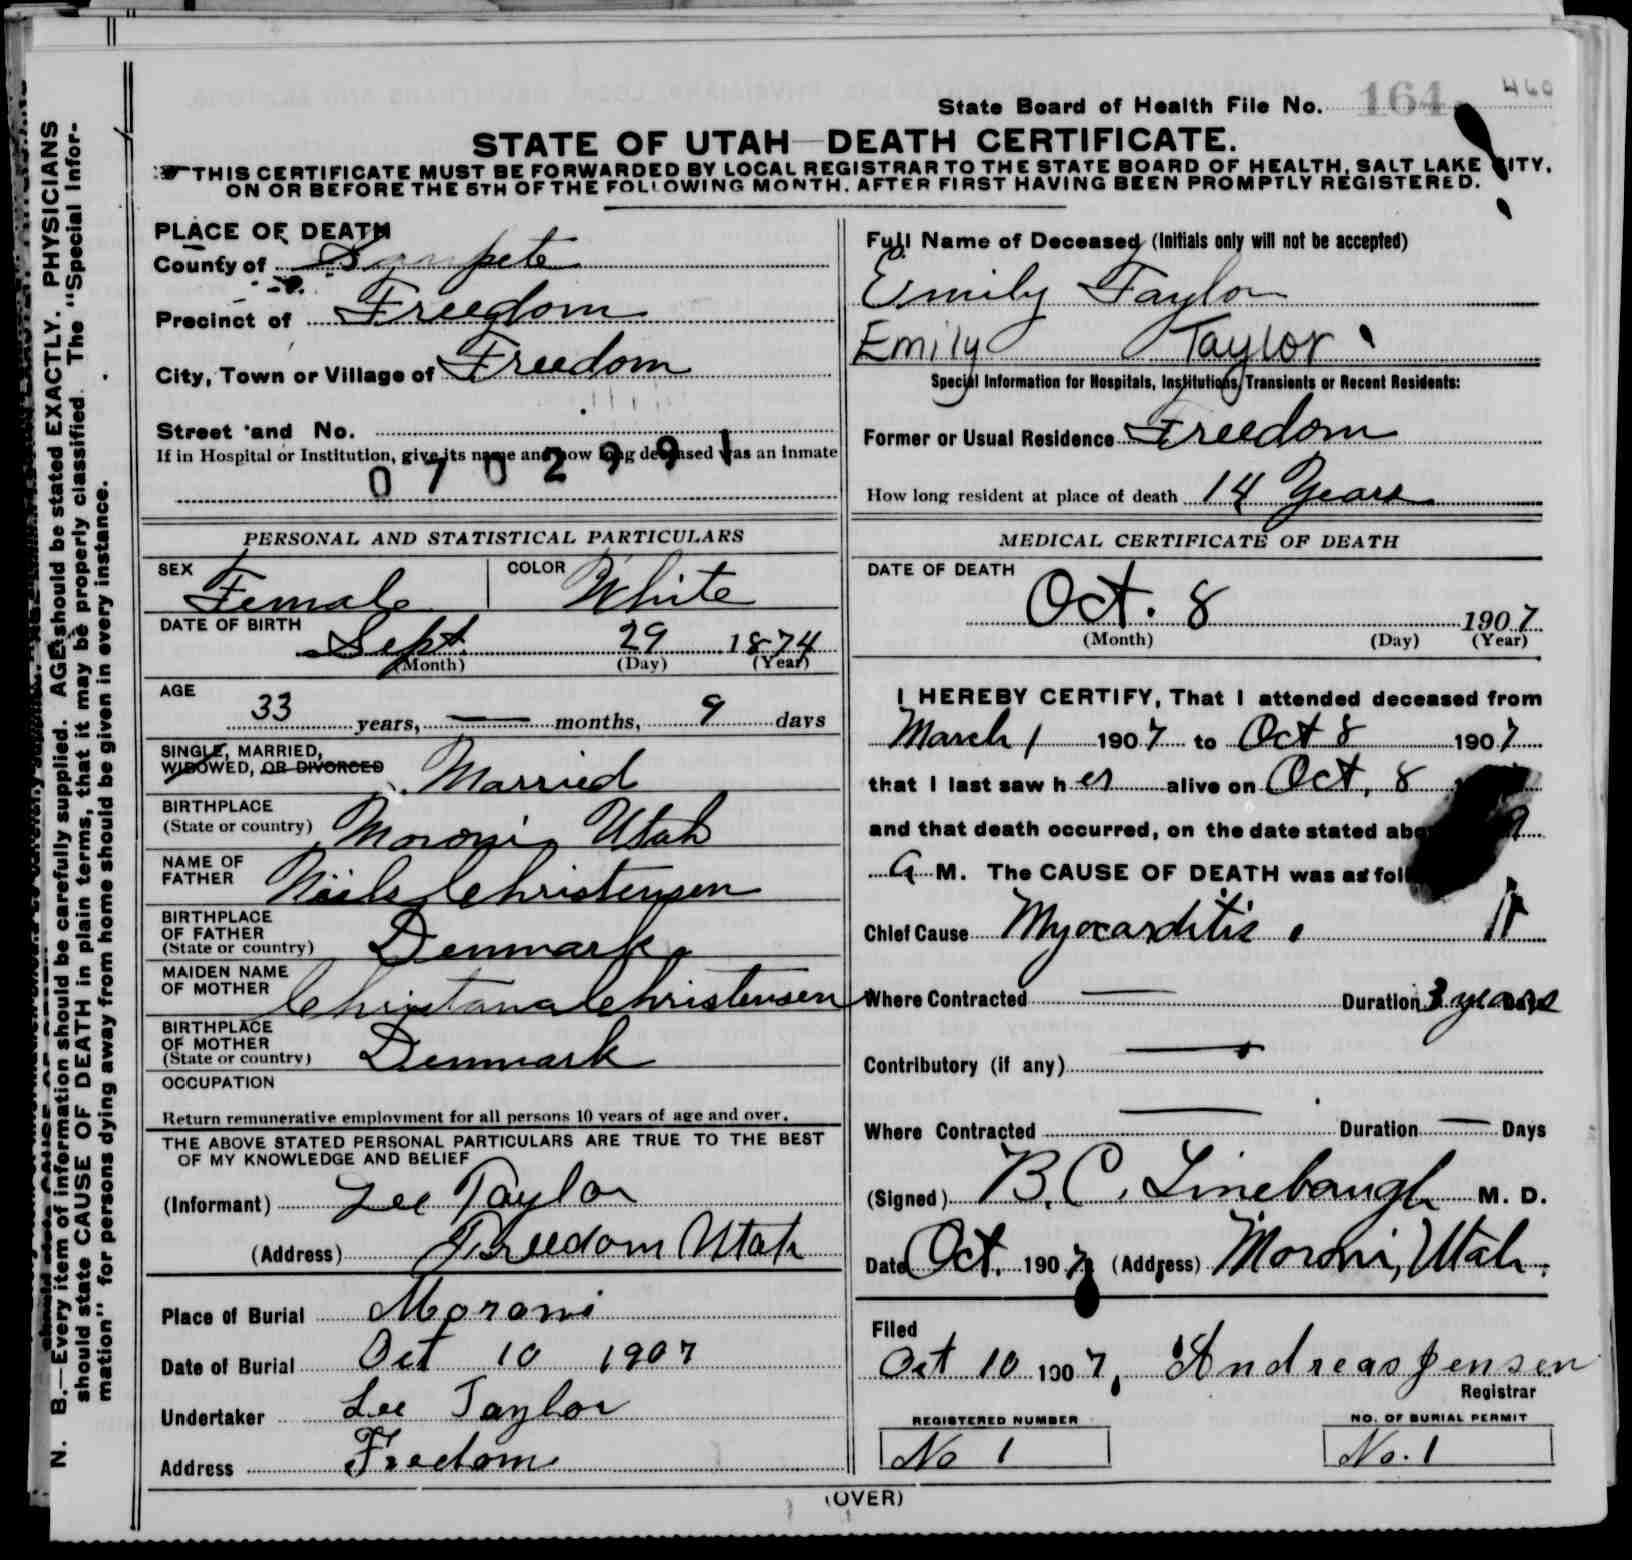 State Board of Health File No. 164 460
STATE OF UTAH—DEATH CERTIFICATE.
THIS CERTIFICATE MUST BE FORWARDED BY LOCAL REGISTRAR TO THE STATE BOARD OF HEALTH, SALT LAKE CITY,
ON OR BEFORE THE 5TH OF THE FOLLOWING MONTH. AFTER FIRST HAVING BEEN PROMPTLY REGISTERED.
N. B.—Every item of information should be carefully supplied. AGE should be stated EXACTLY. PHYSICIANS
should state CAUSE OF DEATH in plain terms, that it may be properly classified. The "Special Infor-
mation" for persons dying away from home should be given in every instance.
PLACE OF DEATH
County of Sanpete
Precinct of Freedom
City, Town or Village of Freedom
Street and No.
If in Hospital or Institution, give its name and how long deceased was an inmate
0702991
PERSONAL AND STATISTICAL PARTICULARS
SEX Female COLOR White
DATE OF BIRTH Sept. 29 1874
(Month) (Day) (Year)
AGE
33 years, — months, 9 days
SINGLE, MARRIED,
WIDOWED, OR DIVORCED Married
BIRTHPLACE
(State or country) Moroni Utah
NAME OF
FATHER Niels Christensen
BIRTHPLACE
OF FATHER
(State or country) Denmark
MAIDEN NAME
OF MOTHER Christana Christensen
BIRTHPLACE
OF MOTHER
(State or country) Denmark
OCCUPATION
Return remunerative employment for all persons 10 years of age and over.
THE ABOVE STATED PERSONAL PARTICULARS ARE TRUE TO THE BEST
OF MY KNOWLEDGE AND BELIEF
(Informant) Lee Taylor
(Address) Freedom Utah
Place of Burial Moroni
Date of Burial Oct 10 1907
Undertaker Lee Taylor
Address Freedom
Full Name of Deceased (Initials only will not be accepted)
Emily Taylor
Emily Taylor
Special Information for Hospitals, Institutions, Transients or Recent Residents:
Former or Usual Residence Freedom
How long resident at place of death 14 Years
MEDICAL CERTIFICATE OF DEATH
DATE OF DEATH
Oct. 8 1907
(Month) (Day) (Year)
I HEREBY CERTIFY, That I attended deceased from
March 1 1907 to Oct 8 1907
that I last saw her alive on Oct, 8
and that death occurred, on the date stated abo 9
a M. The CAUSE OF DEATH was as fol
Chief Cause Myocarditis
Where Contracted — Duration 3 years Days
Contributory (if any) —
Where Contracted — Duration — Days
(Signed) B. C. Linebaugh M. D.
Date Oct. 1907 (Address) Moroni, Utah.
Filed
Oct 10 1907, Andreas Jensen
Registrar
REGISTERED NUMBER NO. OF BURIAL PERMIT
No 1 No. 1
(OVER)